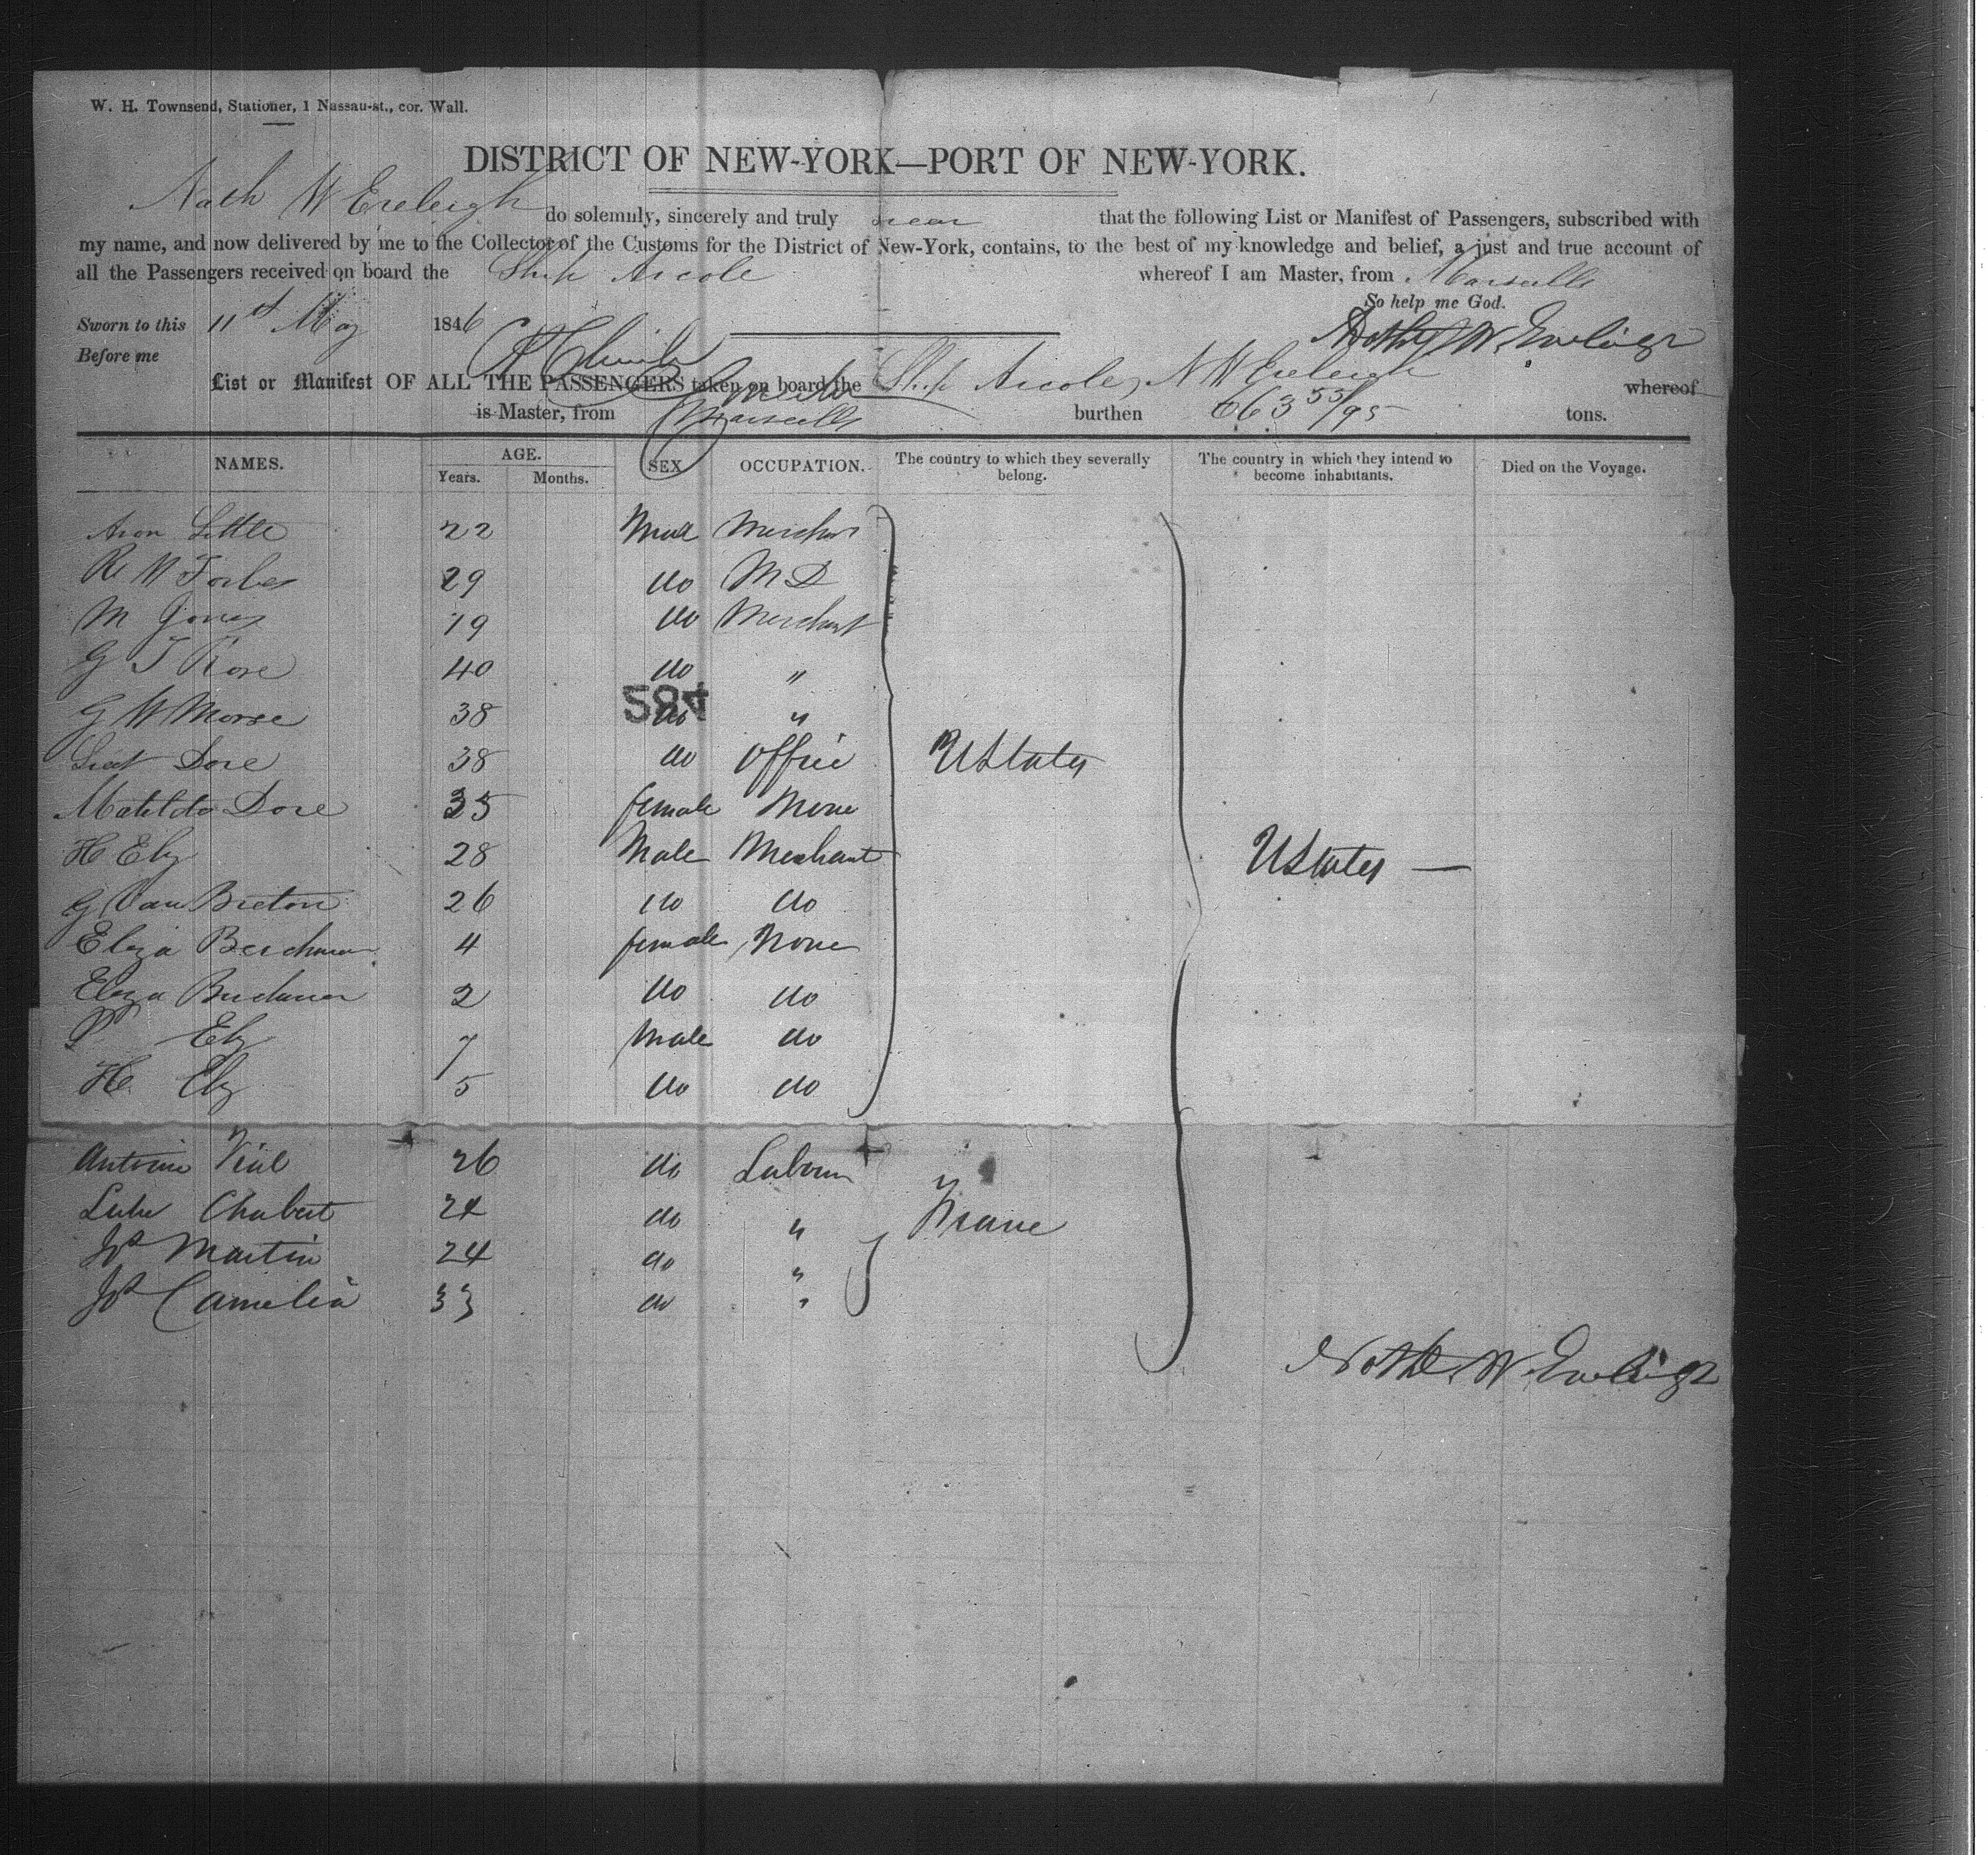 W. H. Townsend, Stationer, 1 Nassau-st., cor. Wall.
DISTRICT OF NEW-YORK—PORT OF NEW-YORK.
Nath W Eveleigh do solemnly, sincerely and truly swear that the following List or Manifest of Passengers, subscribed with
my name, and now delivered by me to the Collector of the Customs for the District of New-York, contains, to the best of my knowledge and belief, a just and true account of
all the Passengers received on board the Ship Arcole whereof I am Master, from Marseille
So help me God.
Sworn to this 11th May 1846 Nathl W. Eveleigh
Before me
List or Manifest OF ALL THE PASSENGERS taken on board the Ship Arcole, N W Eveleigh whereof
is Master, from Marseille burthen 663 55/95 tons.
NAMES. AGE. SEX OCCUPATION. The country to which they severally belong. The country in which they intend to become inhabitants. Died on the Voyage.
Years. Months.
Aron Little 22 Male Merchant
R W Forbes 29 do M D
M Jones 19 do Merchant
G T Rose 40 do "
584
G W Morse 38 do "
Lieut Dore 38 do Office UStates
Matilda Dore 35 female None
H Ely 28 Male Merchant UStates —
G Van Breton 26 do do
Eliza 4 female None
Eliza 2 do do
P Ely 7 Male do
H Ely 5 do do
Antoine Vial 26 do Labourer
Chabert 24 do " France
Js Martin 24 do "
Js Camelia 33 do "
Nathl W. Eveleigh